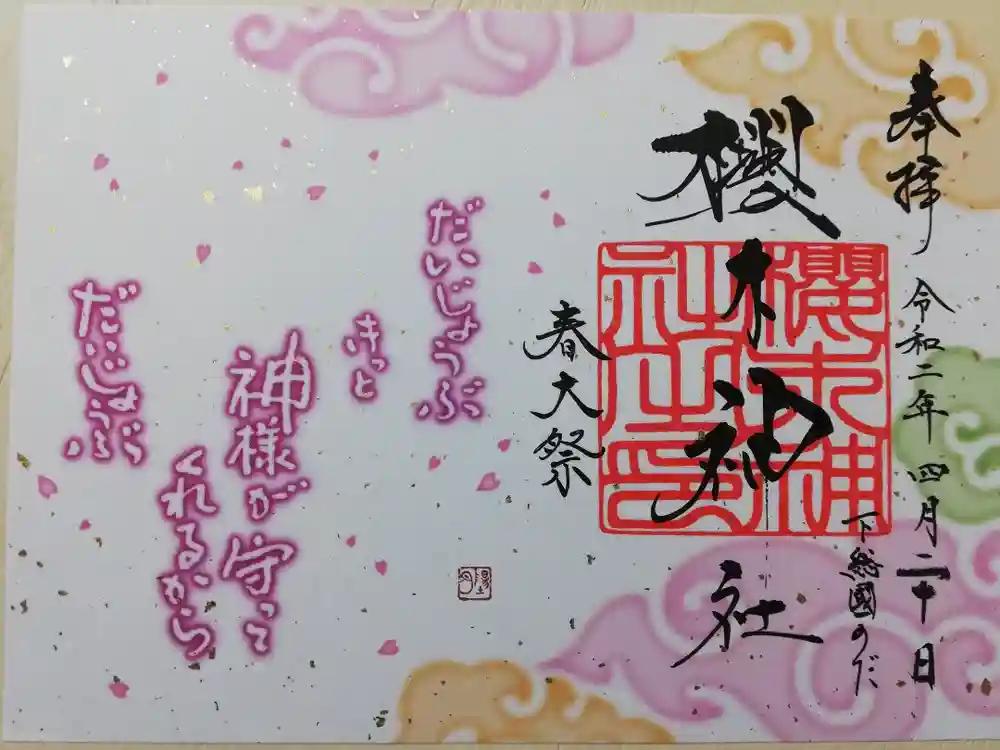 奉拝
令和二年 四月二十日
下総國のだ
櫻木神社
櫻木神社之印
春大祭
だいじょうぶ
きっと
神様が守って
くれるから
だいじょうぶ